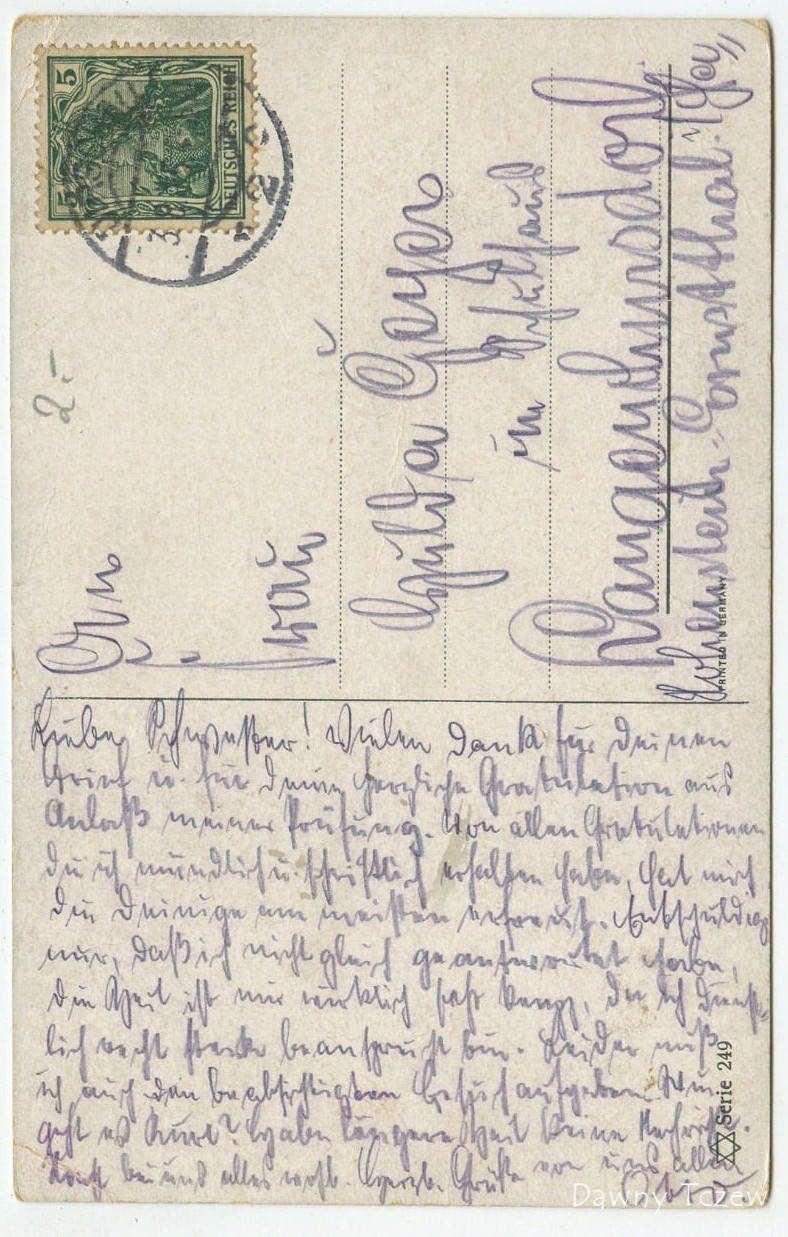 Liebe Schwester! Vielen Dank für Deinen
Brief u. für Deine herzliche Gratulation aus
Anlaß meiner Prüfung. Von allen Gratulationen
die ich mündlich u. schriftlich erhalten habe, hat mich
die Deinige am meisten erfreut. Entschuldige
nur, daß ich nicht gleich geantwortet habe,
die Zeit ist mir wirklich sehr knapp, da ich dienst-
lich recht stark beansprucht bin. Leider muß
ich auch den beabsichtigten Besuch aufgeben. Wie
geht es Kurt? Haben längere Zeit keine Nachricht.
Sonst bei uns alles wohl. Herzl. Grüße von uns allen
DEUTSCHES REICH
5
5
2.-
An
Frau
Hulda Geyer
im Schulhaus
Langenchursdorf
Hohenstein-Ernstthal
PRINTED IN GERMANY
Serie 249
Dawny Tczew